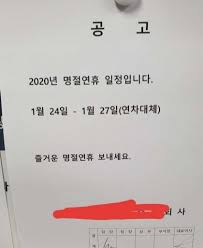 공 고
2020년 명절연휴 일정입니다.
1월 24일 - 1월 27일(연차대체)
즐거운 명절연휴 보내세요.
회 사